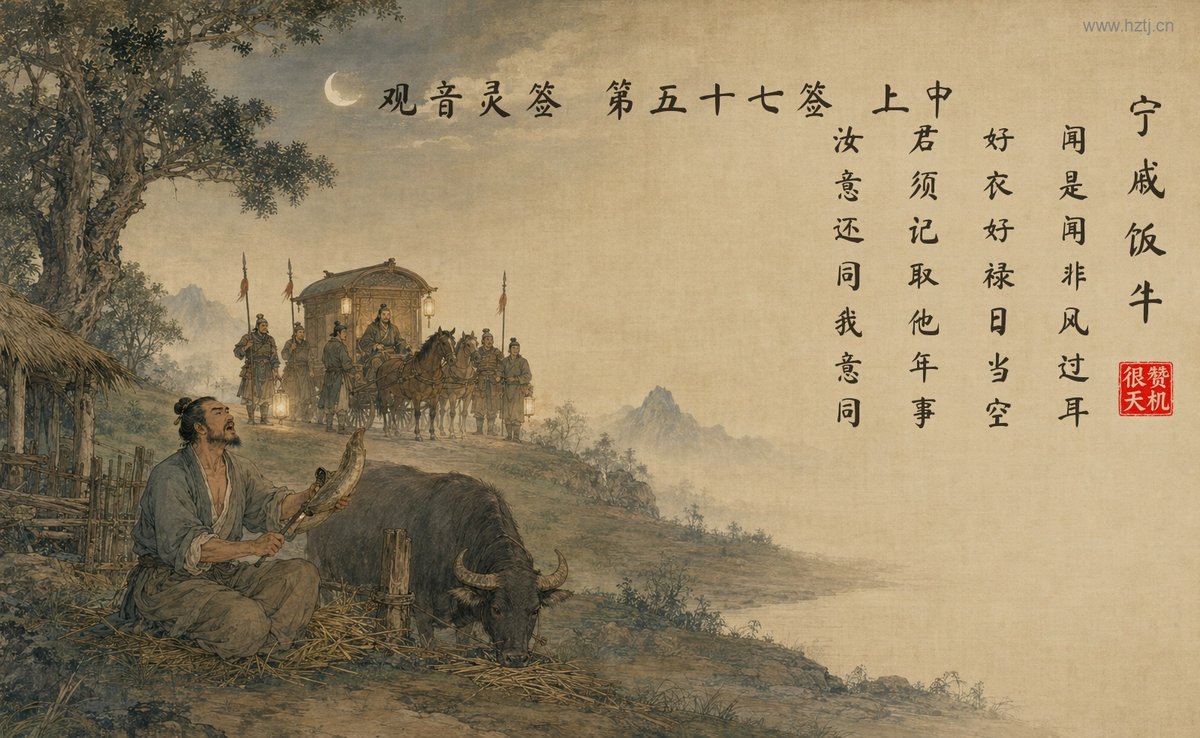 www.hztj.cn
观音灵签 第五十七签 上中
宁戚饭牛
闻是闻非风过耳
好衣好禄日当空
君须记取他年事
汝意还同我意同
很赞
天机